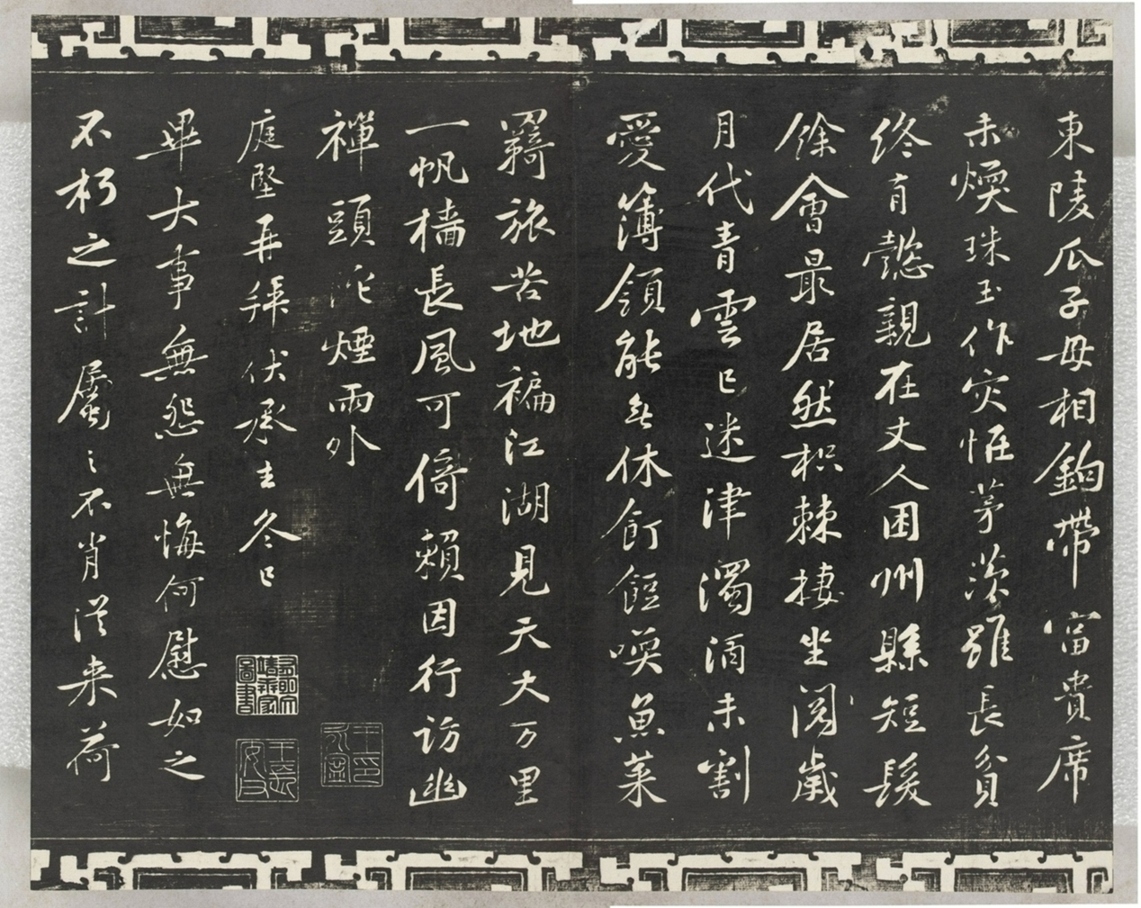 東陵瓜子母相鉤帶富貴席
未煗珠玉作灾怪茅茨雖長貧
終有懿親在丈人困州縣短髮
餘會最居然枳棘棲坐閱歲
月代青雲已迷津濁酒未割
愛簿領能無休飣餖喚魚菜
羇旅苦地褊江湖見天大万里
一帆檣長風可倚賴因行訪幽
禪頭陁煙雨外
庭堅再拜伏承去冬已
畢大事無怨無悔何慰如之
不朽之計屬之不肖從来荷